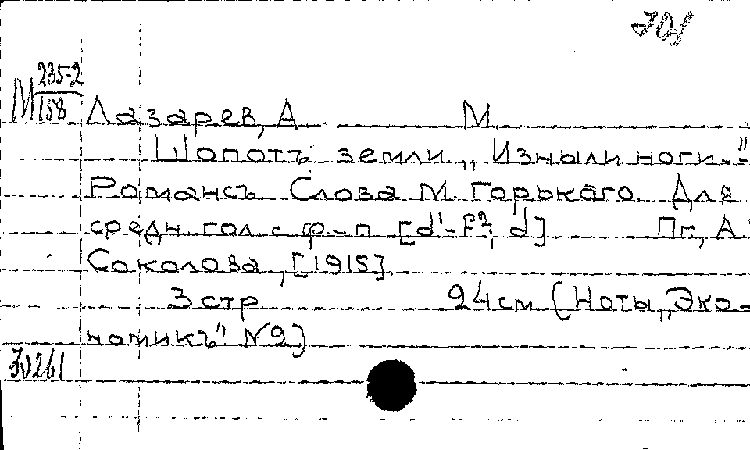 701
М 235-2
158
Лазарев, А М.
Шопотъ земли „Изныли ноги.."
Романсъ Слова М. Горькаго. Для
средн. гол. с ф-п [d¹-f², d] Пг., А
Соколова, [1915]
3 стр 24 см (Ноты „Эко-
номикъ" №2)